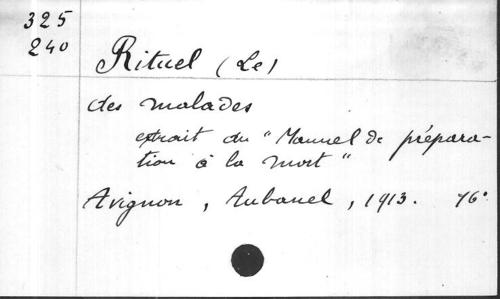 325
240
Rituel (Le)
des malades
extrait du "Manuel de prépara-
tion à la mort"
Avignon, Aubanel, 1913. 16°